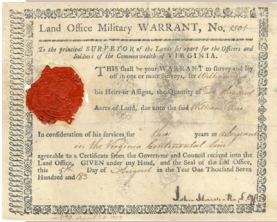 Land Office Military WARRANT, No.
To the principal SURVEYOR of the Land, set apart for the Officers and
Soldiers of the Commonwealth of VIRGINIA.
THIS shall be your WARRANT to Survey and lay
off in one or more Surveys, for William
his Heirs or Assigns, the Quantity of
Acres of Land, due unto the said William
In consideration of his services for years as
in the Virginia Continental Line
agreeable to a Certificate from the Governor and Council received into the
Land Office, GIVEN under my Hand, and the Seal of the said Office,
this Day of August in the Year One Thousand Seven
Hundred and 83